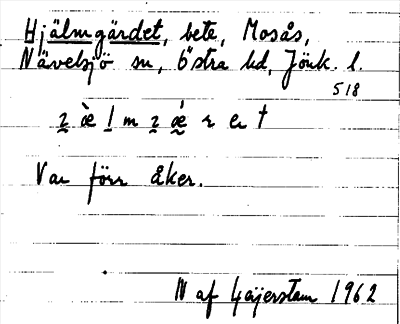 Hjälmgärdet, bete, Mosås,
Nävelsjö sn, Östra hd, Jönk. l.
518
Var förr åker.
N af Geijerstam 1962